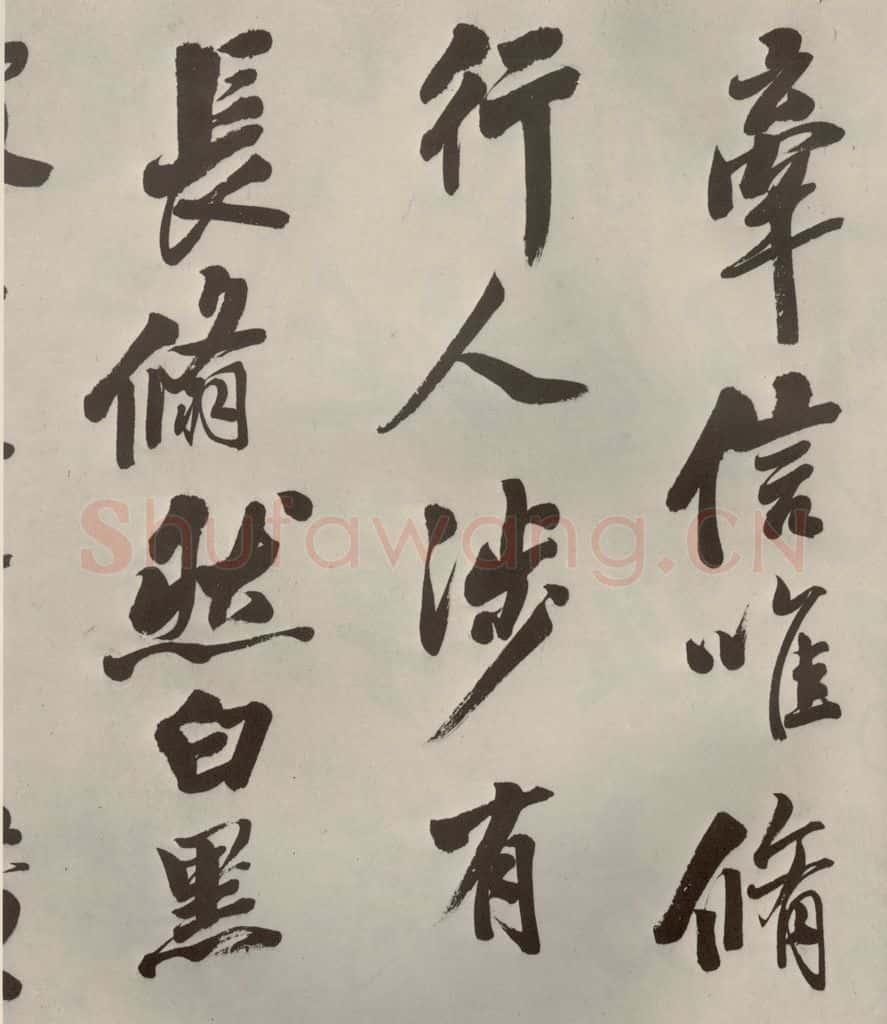 牽信唯脩
行人涉有
長翛然白黑
Shufawang.CN